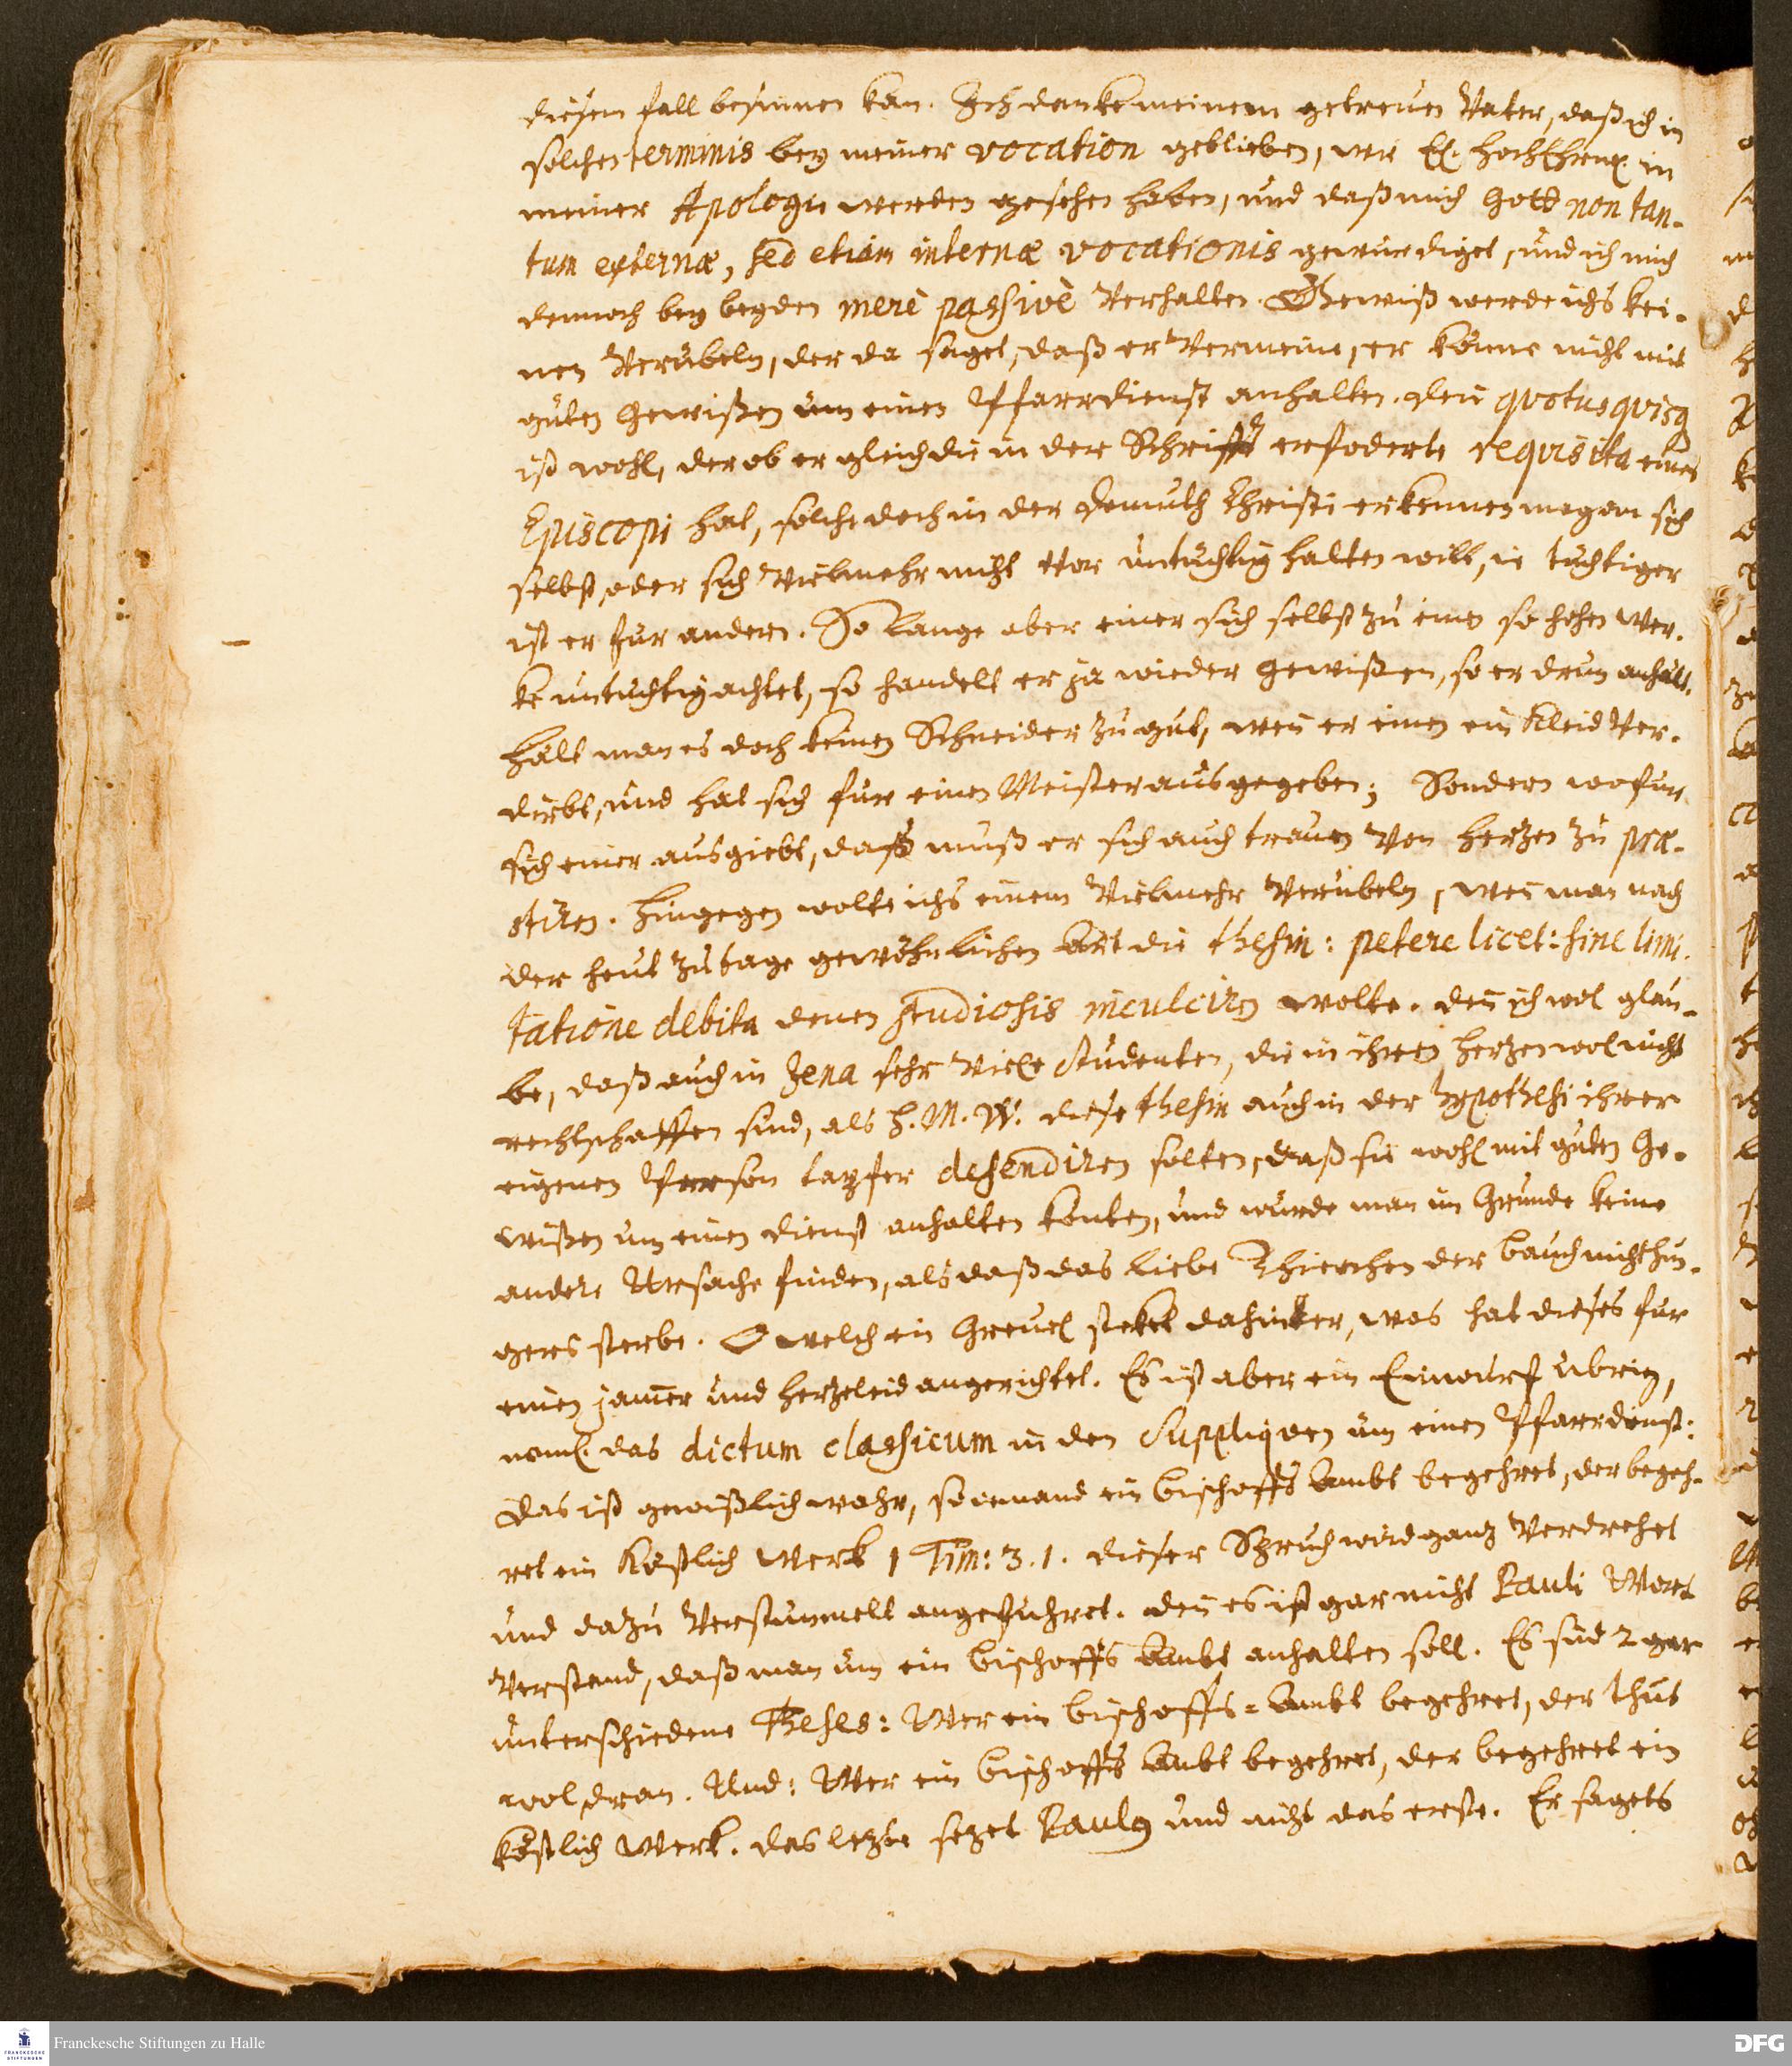 diesem fall besinnen kan. Ich danke meinem getreuen Vater, daß ich in
solchen terminis bey meiner vocation geblieben, wie E. HochEhrw. in
meiner Apologie werden gesehen haben, und daß mich Gott non tan-
tum externæ, sed etiam internæ vocationis gewürdiget, und ich mich
dennoch bey beyden merè passivè verhalten. Gewiß werde ichs kei-
nen verübeln, der da saget, daß er vermeine, er könne nicht mit
guten Gewißen um einen Pfarrdienst anhalten. den quotusquisq
ist wohl, der ob er gleich die in der Schrifft erfoderte requisita eines
Episcopi hat, solche doch in der Demuth Christi erkennen mag an sich
selbst, oder sich vielmehr nicht vor untüchtig halten will, ie tüchtiger
ist er für andern. So lange aber einer sich selbst zu einen so hohen Wer-
ke untüchtig achtet, so handelt er ja wieder Gewißen, so er drum anhält.
Hält man es doch keinen Schneider zu gut, wen er einen ein Kleid ver-
dirbt, und hat sich für einen Meister ausgegeben; Sondern wofür
sich einer ausgiebt, daß muß er sich auch trauen von Herzen zu præ-
stiren. Hingegen wolte ichs einem vielmehr verübeln, wen man nach
der heut zu tage gewöhnlichen Art die thesin: petere licet: sine limi-
tatione debita denen studiosis inculciren wolte. den ich wol glau-
be, daß auch in Jena sehr viele Studenten, die in ihren Herzen wol nicht
rechtschaffen sind, als H. M. W. diese thesin auch in der hypothesi ihrer
eigenen Person tapfer defendiren solten, daß sie wohl mit guten Ge-
wißen um einen Dienst anhalten könten, und würde man im Grunde keine
andere Ursache finden, als daß das liebe Thierchen der Bauch nicht hun-
gers sterbe. O welch ein Greuel steket dahinter, was hat dieses für
einen jamer und Herzeleid angerichtet. Es ist aber ein Einwurf übrig,
neml. das dictum classicum in den Suppliqven um einen Pfarrdienst:
Das ist gewißlich wahr, so iemand ein Bischoffs Ambt begehret, der begeh-
ret ein Köstlich Werk 1 Tim: 3. 1. dieser Spruch wird ganz verdrehet
und dazu verstümmelt angeführet. den es ist gar nicht Pauli Wort
Verstand, daß man um ein Bischoffs Ambt anhalten soll. Es sind 2 gar
unterschiedene Theses: Wer ein Bischoffs-Ambt begehret, der thut
wol dran. Und: Wer ein Bischoffs Ambt begehret, der begehret ein
köstlich Werk. das lezte sezet Paulus und nicht das erste. Er sagets
Franckesche Stiftungen zu Halle
DFG